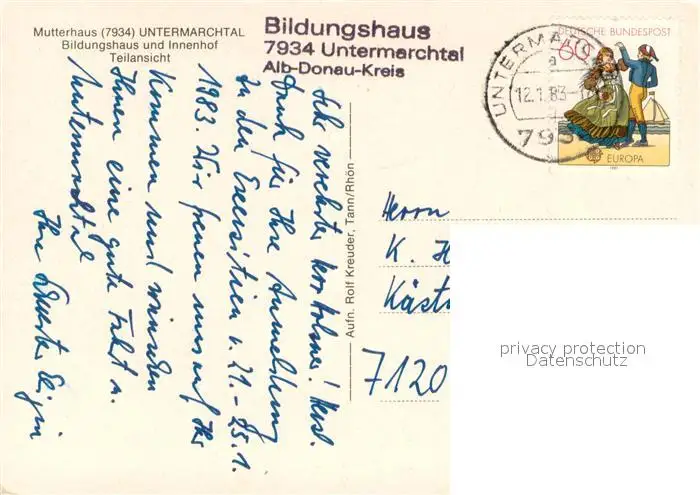 Mutterhaus (7934) UNTERMARCHTAL
Bildungshaus und Innenhof
Teilansicht
Bildungshaus
7934 Untermarchtal
Alb-Donau-Kreis
UNTERMARC
a
12.1.83
793
DEUTSCHE BUNDESPOST
60
EUROPA
1981
Sehr verehrte Herr! Herzl.
Dank für Ihre Anmeldung
zu den Exerzitien v. 21.-25.1.
1983. Wir freuen uns auf Ihr
Kommen und wünschen
Ihnen eine gute Fahrt n.
Untermarchtal
Ihre Schwester
Aufn. Rolf Kreuder, Tann/Rhön
Herrn
K. H
Käst
7120
privacy protection
Datenschutz